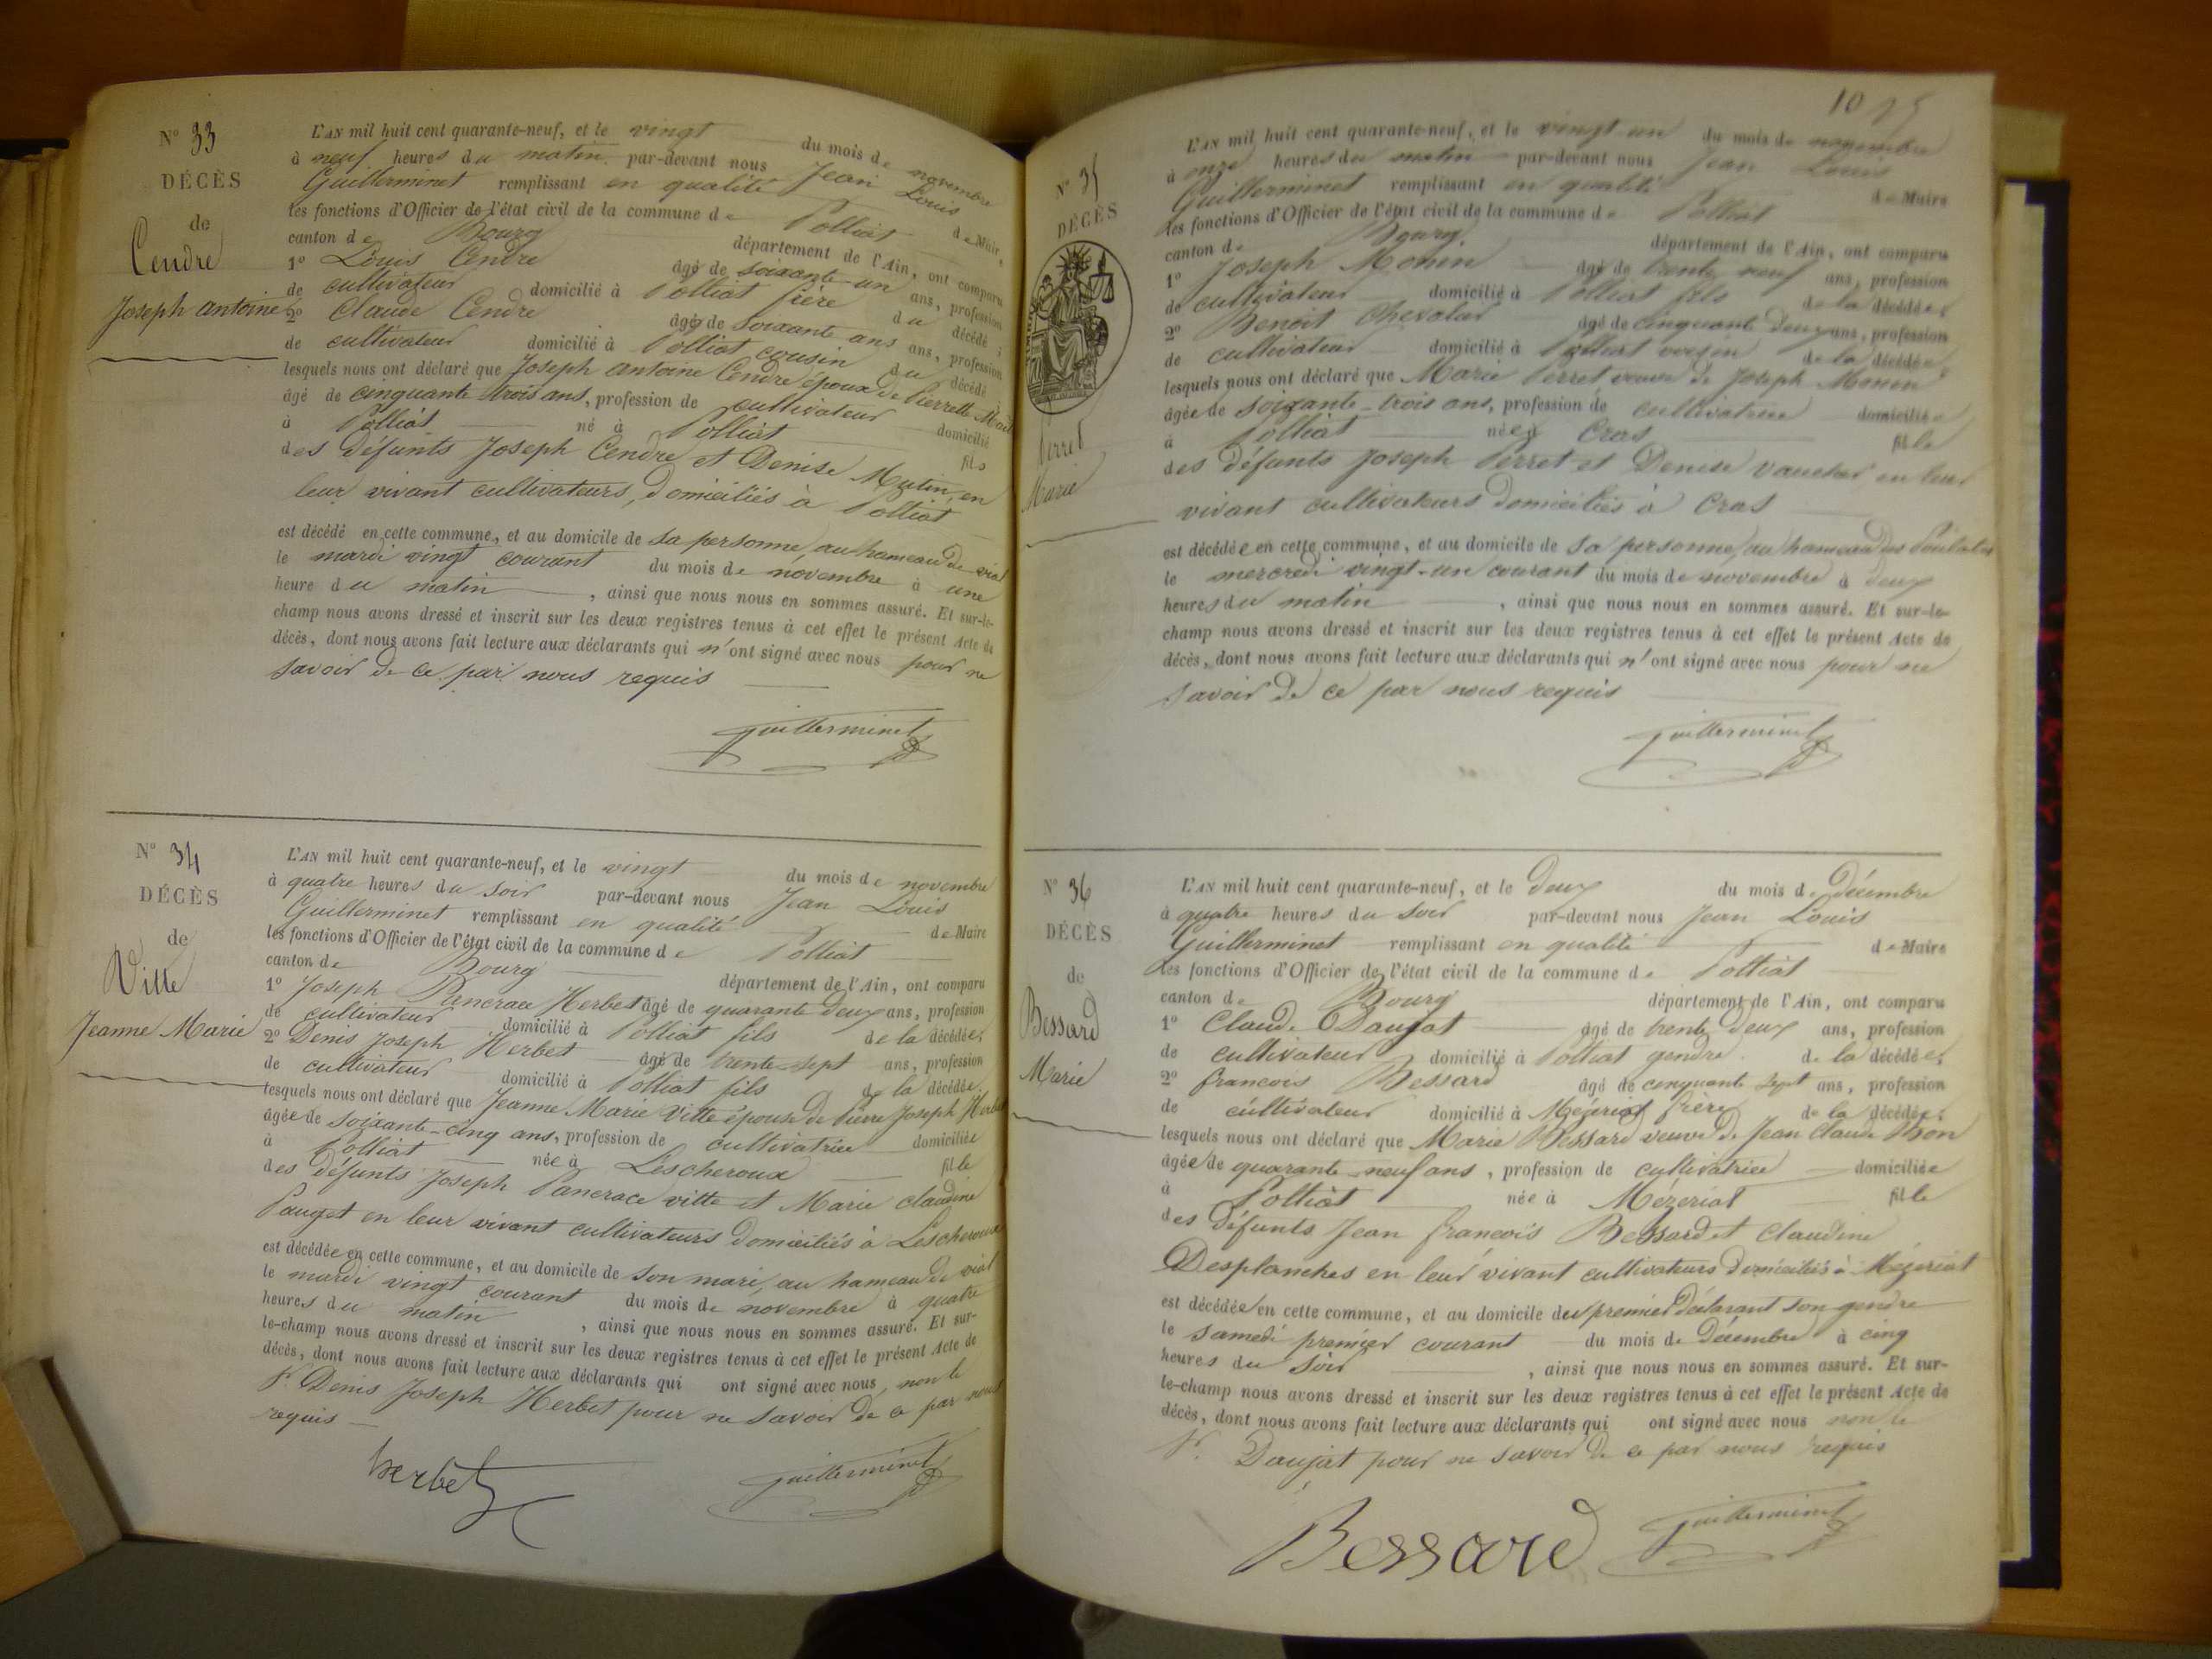 N° 33
DÉCÈS
de
Cendre
Joseph Antoine
L'AN mil huit cent quarante-neuf, et le vingt du mois de novembre
à neuf heures du matin par-devant nous Jean Louis
Guillerminet remplissant en qualité de Maire
les fonctions d'Officier de l'état civil de la commune de Polliat
canton de Bourg département de l'Ain, ont comparu
1° Louis Cendre âgé de soixante-un ans, profession
de cultivateur domicilié à Polliat frère du décédé;
2° Claude Cendre âgé de soixante ans ans, profession
de cultivateur domicilié à Polliat cousin du décédé
lesquels nous ont déclaré que Joseph Antoine Cendre époux de Pierrette
âgé de cinquante trois ans, profession de cultivateur domicilié
à Polliat né à Polliat fils
des défunts Joseph Cendre et Denise Mutin, en
leur vivant cultivateurs, domiciliés à Polliat
est décédé en cette commune, et au domicile de sa personne, au hameau de vial
le mardi vingt courant du mois de novembre à une
heure du matin , ainsi que nous nous en sommes assuré. Et sur-le-
champ nous avons dressé et inscrit sur les deux registres tenus à cet effet le présent Acte de
décès, dont nous avons fait lecture aux déclarants qui n'ont signé avec nous pour ne
savoir de ce par nous requis
Guillerminet
N° 34
DÉCÈS
de
Vitte
Jeanne Marie
L'AN mil huit cent quarante-neuf, et le vingt du mois de novembre
à quatre heures du soir par-devant nous Jean Louis
Guillerminet remplissant en qualité de Maire
les fonctions d'Officier de l'état civil de la commune de Polliat
canton de Bourg département de l'Ain, ont comparu
1° Joseph Pancrace Herbet âgé de quarante deux ans, profession
de cultivateur domicilié à Polliat fils de la décédée,
2° Denis Joseph Herbet âgé de trente-sept ans, profession
de cultivateur domicilié à Polliat fils de la décédée.
lesquels nous ont déclaré que Jeanne Marie Vitte épouse de Pierre Joseph Herbet
âgée de soixante-cinq ans, profession de cultivatrice domiciliée
à Polliat née à Lescheroux fille
des défunts Joseph Pancrace vitte et Marie Claudine
Pauget en leur vivant cultivateurs domiciliés à Lescheroux
est décédée en cette commune, et au domicile de son mari, au hameau de vial
le mardi vingt courant du mois de novembre à quatre
heures du matin , ainsi que nous nous en sommes assuré. Et sur-
le-champ nous avons dressé et inscrit sur les deux registres tenus à cet effet le présent Acte de
décès, dont nous avons fait lecture aux déclarants qui ont signé avec nous, non le
Sr. Denis Joseph Herbet pour ne savoir de ce par nous
requis
herbet
Guillerminet
N° 35
DÉCÈS
Perret
Marie
L'AN mil huit cent quarante-neuf, et le vingt-un du mois de novembre
à onze heures du matin par-devant nous Jean Louis
Guillerminet remplissant en qualité de Maire
les fonctions d'Officier de l'état civil de la commune de Polliat
canton de Bourg département de l'Ain, ont comparu
1° Joseph Monin âgé de trente neuf ans, profession
de cultivateur domicilié à Polliat fils de la décédée,
2° Benoit Chevalier âgé de cinquante deux ans, profession
de cultivateur domicilié à Polliat voisin de la décédée,
lesquels nous ont déclaré que Marie Perret veuve de Joseph Monin
âgée de soixante-trois ans, profession de cultivatrice domiciliée
à Polliat née à Cras fille
des défunts Joseph Perret et Denise Vaucher en leur
vivant cultivateurs domiciliés à Cras
est décédée en cette commune, et au domicile de sa personne, au hameau des
le mercredi vingt-un courant du mois de novembre à deux
heures du matin , ainsi que nous nous en sommes assuré. Et sur-le-
champ nous avons dressé et inscrit sur les deux registres tenus à cet effet le présent Acte de
décès, dont nous avons fait lecture aux déclarants qui n'ont signé avec nous pour ne
savoir de ce par nous requis
Guillerminet
N° 36
DÉCÈS
de
Bessard
Marie
L'AN mil huit cent quarante-neuf, et le deux du mois de décembre
à quatre heures du soir par-devant nous Jean Louis
Guillerminet remplissant en qualité de Maire
les fonctions d'Officier de l'état civil de la commune de Polliat
canton de Bourg département de l'Ain, ont comparu
1° Claude Daujat âgé de trente deux ans, profession
de cultivateur domicilié à Polliat gendre de la décédée,
2° francois Bessard âgé de cinquante sept ans, profession
de cultivateur domicilié à Mézériat frère de la décédée;
lesquels nous ont déclaré que Marie Bessard veuve de Jean Claude
âgée de quarante-neuf ans, profession de cultivatrice domiciliée
à Polliat née à Mézeriat fille
des défunts Jean francois Bessard et Claudine
Desplanches en leur vivant cultivateurs domiciliés à Mézeriat
est décédée en cette commune, et au domicile du premier déclarant son gendre
le samedi premier courant du mois de décembre à cinq
heures du soir , ainsi que nous nous en sommes assuré. Et sur-
le-champ nous avons dressé et inscrit sur les deux registres tenus à cet effet le présent Acte de
décès, dont nous avons fait lecture aux déclarants qui ont signé avec nous non le
Sr. Daujat pour ne savoir de ce par nous requis
Bessard
Guillerminet